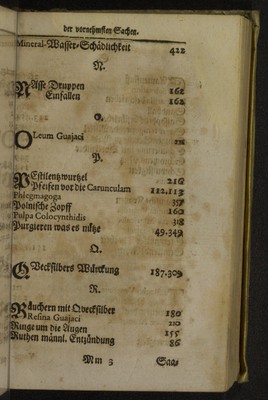 der vornehmsten Sachen.
Mineral-Wasser-Schädlichkeit 422
N.
NAsse Druppen 162
Einfallen 162
O.
OLeum Guajaci
P.
PEstilentzwurtzel 216
Pfeifen vor die Carunculam 112.113
Phlegmagoga 37
Polnische Zopff 160
Pulpa Colocynthidis 38
Purgieren was es nütze 49.349
Q.
QVecksilbers Würckung 187.309
R.
RAuchern mit Qvecksilber 180
Resina Guajaci 210
Ringe um die Augen 155
Ruthen männl. Entzündung 86
Mm 3 Saa-